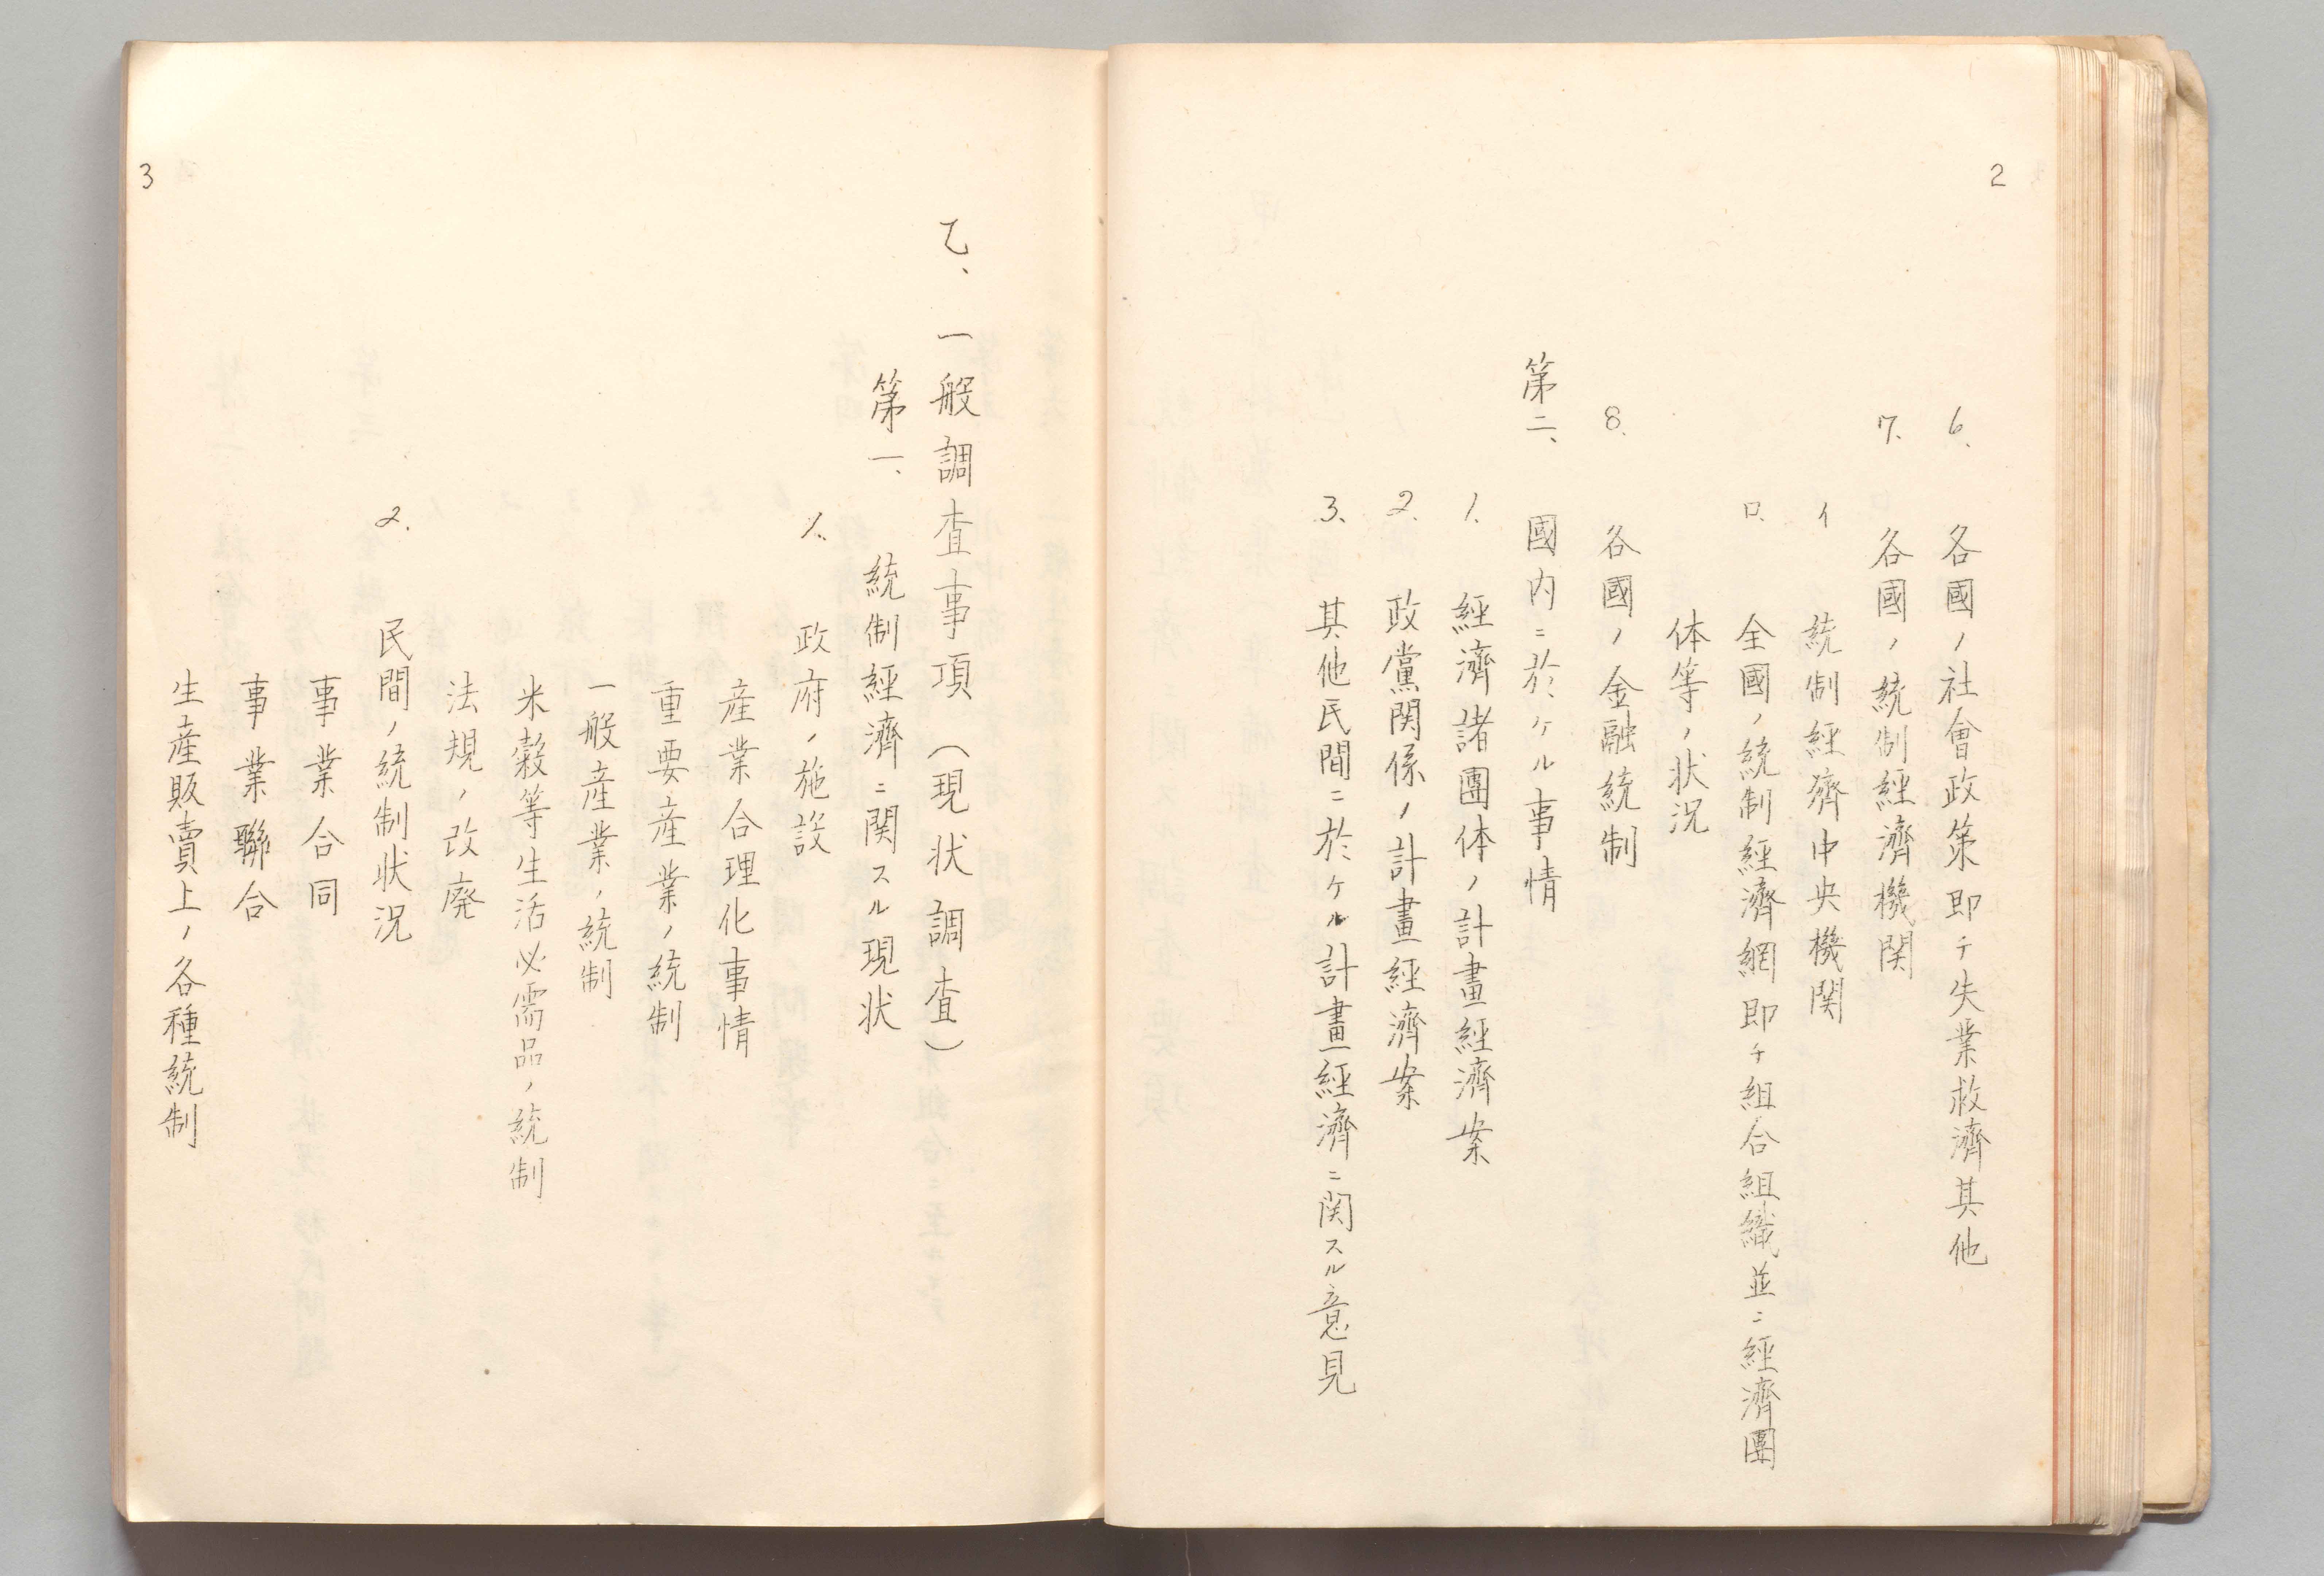 2
6、各國ノ社會政策即チ失業救濟其他
7、各國ノ統制經濟機関
イ 統制經濟中央機関
ロ、全國ノ統制經濟網即チ組合組織並ニ經濟團
体等ノ狀況
8、各國ノ金融統制
第二、國內ニ於ケル事情
1、經濟諸團体ノ計畫經濟案
2、政黨関係ノ計畫經濟案
3、其他民間ニ於ケル計畫經濟ニ関スル意見
3
乙、一般調査事項（現狀調査）
第一、統制經濟ニ関スル現狀
1、政府ノ施設
產業合理化事情
重要產業ノ統制
一般產業ノ統制
米穀等生活必需品ノ統制
法規ノ改廃
2、民間ノ統制狀況
事業合同
事業聯合
生産販賣上ノ各種統制